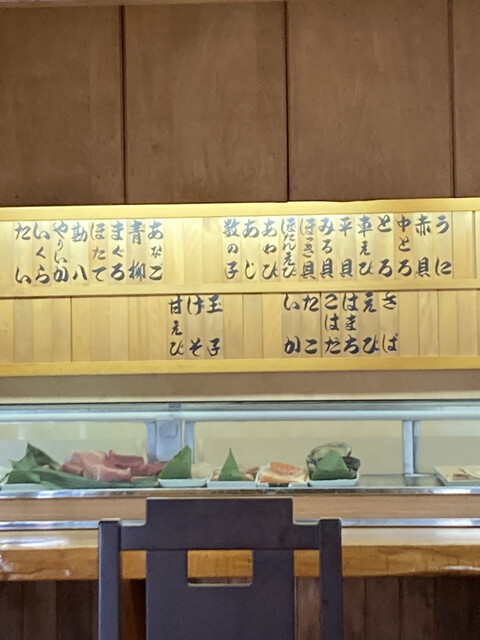 うに
赤貝
中とろ
とろ
車えび
平貝
みる貝
ほっき貝
ぼたんえび
あわび
あじ
数の子
あなご
青柳
まぐろ
ほたて
勘八
やりいか
いくら
たい
さば
えび
はまち
こはだ
たこ
いか
玉子
げそ
甘えび